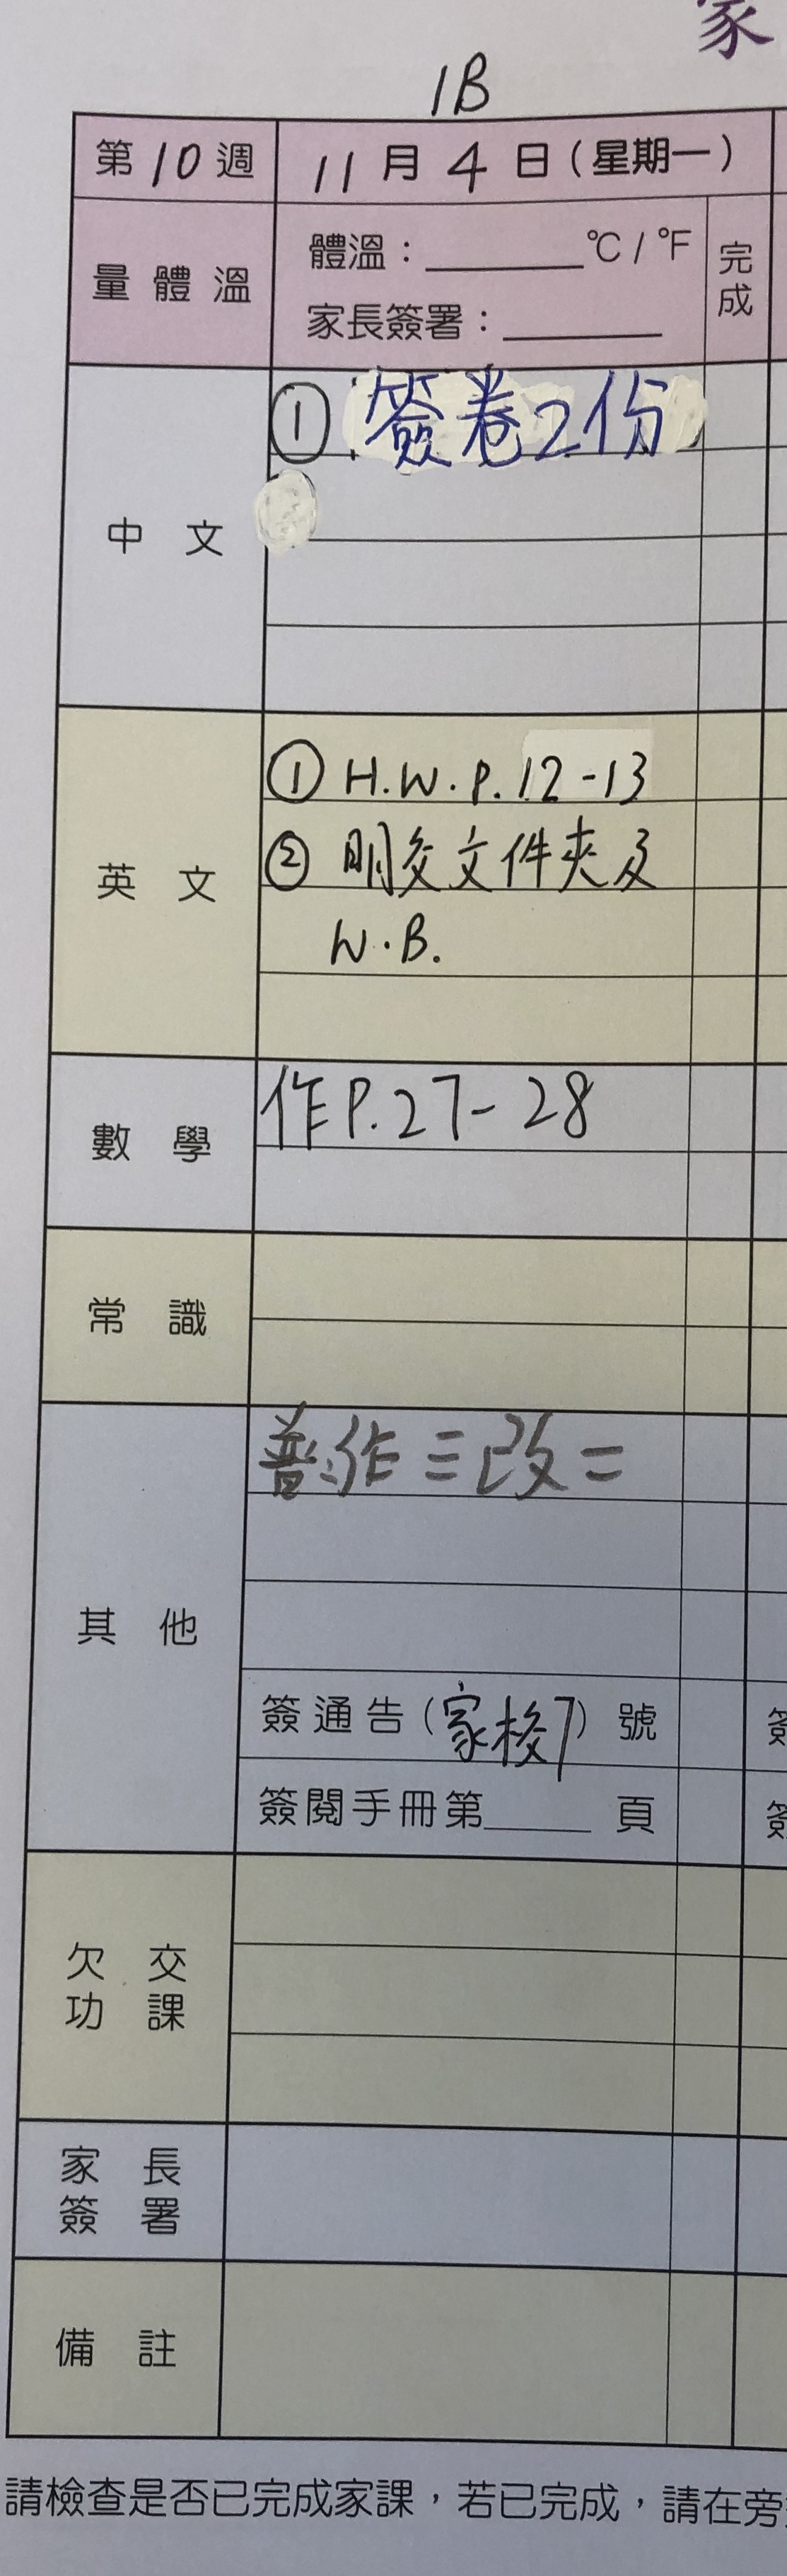 家
1B
第10週 11月4日(星期一)
量體溫 體溫：______°C / °F 完成
家長簽署：______
中文 ① 簽卷2份
英文 ① H.W.P.12-13
② 明交文件夾及
W.B.
數學 作P.27-28
常識
其他 普:作三改二
簽通告(家校7)號
簽閱手冊第____頁
欠交功課
家長簽署
備註
請檢查是否已完成家課，若已完成，請在旁